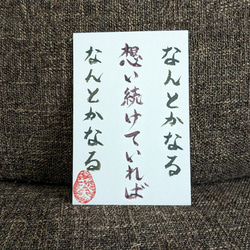 なんとかなる
想い続けていれば
なんとかなる